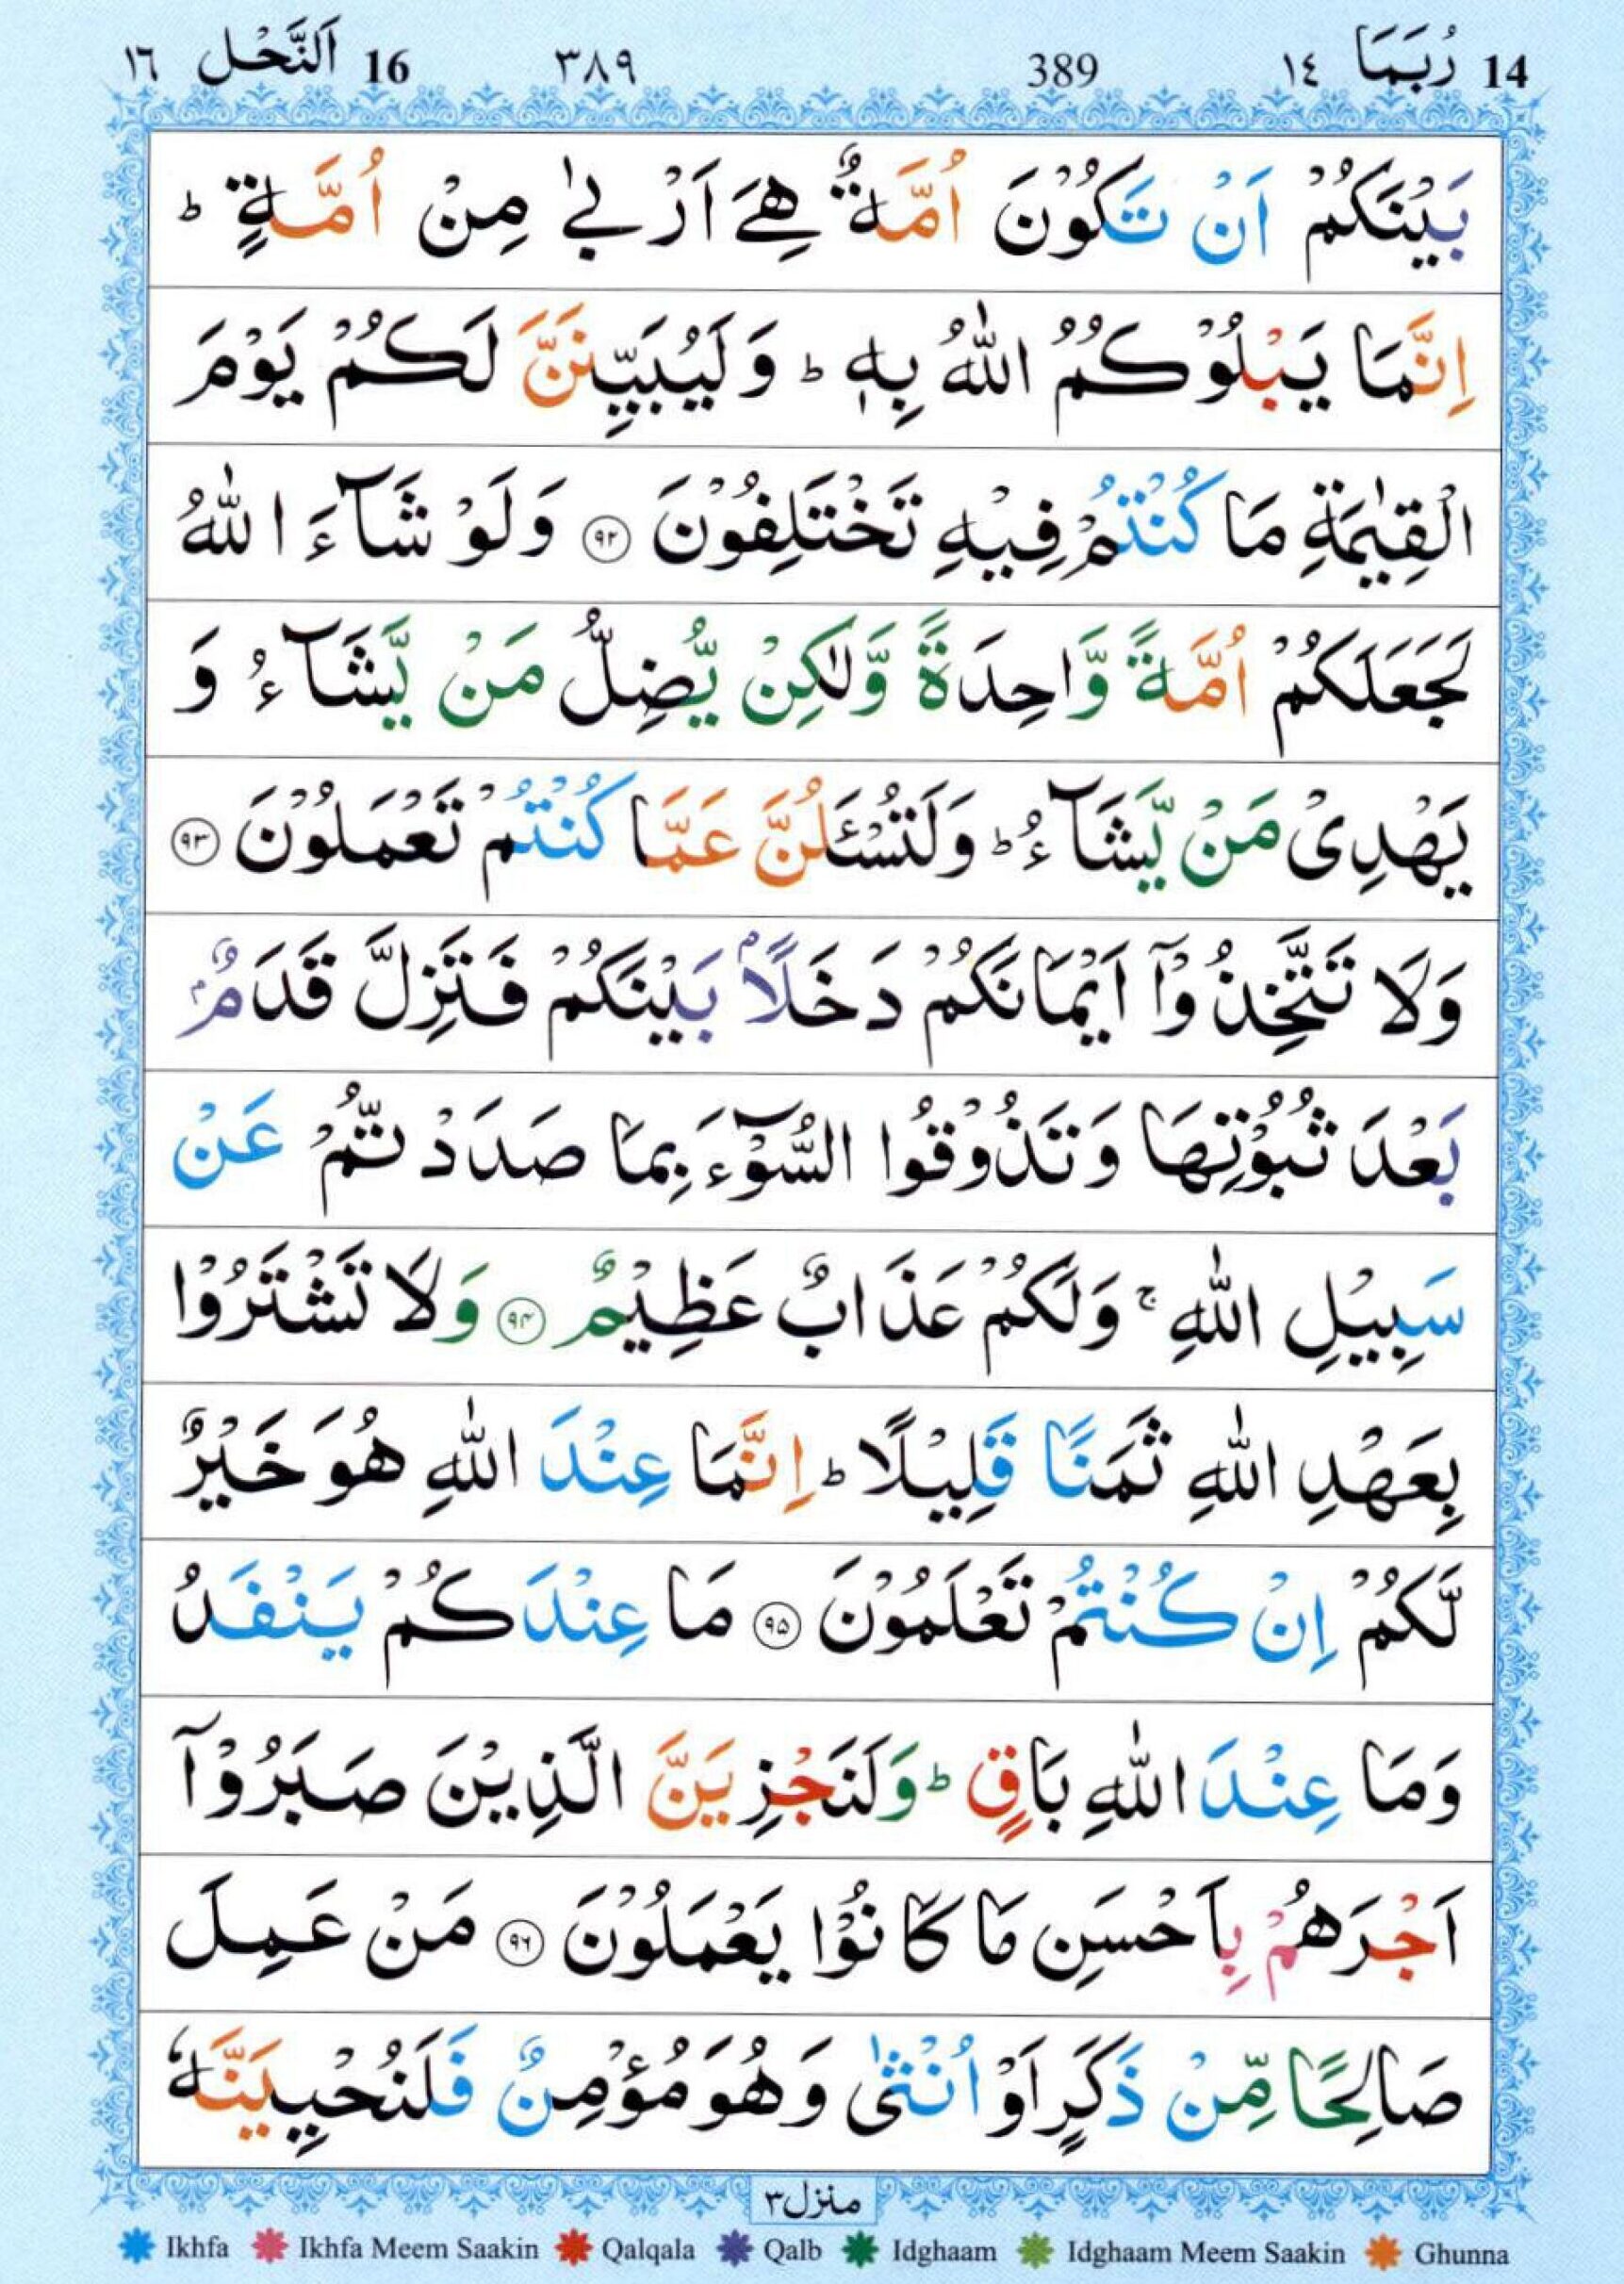 14 رُبَمَا ١٤ 389 ٣٨٩ 16 اَلنَّحْل ١٦
بَيْنَكُمْ اَنْ تَكُوْنَ اُمَّةٌ هِیَ اَرْبٰی مِنْ اُمَّةٍ ؕ
اِنَّمَا يَبْلُوْكُمُ اللّٰهُ بِهٖ ؕ وَلَيُبَيِّنَنَّ لَكُمْ يَوْمَ
الْقِيٰمَةِ مَا كُنْتُمْ فِيْهِ تَخْتَلِفُوْنَ ۝۹۲ وَلَوْ شَآءَ اللّٰهُ
لَجَعَلَكُمْ اُمَّةً وَّاحِدَةً وَّلٰكِنْ يُّضِلُّ مَنْ يَّشَآءُ وَ
يَهْدِیْ مَنْ يَّشَآءُ ؕ وَلَتُسْئَلُنَّ عَمَّا كُنْتُمْ تَعْمَلُوْنَ ۝۹۳
وَلَا تَتَّخِذُوْۤا اَيْمَانَكُمْ دَخَلًاۢ بَيْنَكُمْ فَتَزِلَّ قَدَمٌۢ
بَعْدَ ثُبُوْتِهَا وَتَذُوْقُوا السُّوْٓءَ بِمَا صَدَدْتُّمْ عَنْ
سَبِيْلِ اللّٰهِ ۚ وَلَكُمْ عَذَابٌ عَظِيْمٌ ۝۹۴ وَلَا تَشْتَرُوْا
بِعَهْدِ اللّٰهِ ثَمَنًا قَلِيْلًا ؕ اِنَّمَا عِنْدَ اللّٰهِ هُوَ خَيْرٌ
لَّكُمْ اِنْ كُنْتُمْ تَعْلَمُوْنَ ۝۹۵ مَا عِنْدَكُمْ يَنْفَدُ
وَمَا عِنْدَ اللّٰهِ بَاقٍ ؕ وَلَنَجْزِيَنَّ الَّذِيْنَ صَبَرُوْۤا
اَجْرَهُمْ بِاَحْسَنِ مَا كَانُوْا يَعْمَلُوْنَ ۝۹۶ مَنْ عَمِلَ
صَالِحًا مِّنْ ذَكَرٍ اَوْ اُنْثٰی وَهُوَ مُؤْمِنٌ فَلَنُحْيِيَنَّهٗ
منزل ٣
Ikhfa Ikhfa Meem Saakin Qalqala Qalb Idghaam Idghaam Meem Saakin Ghunna